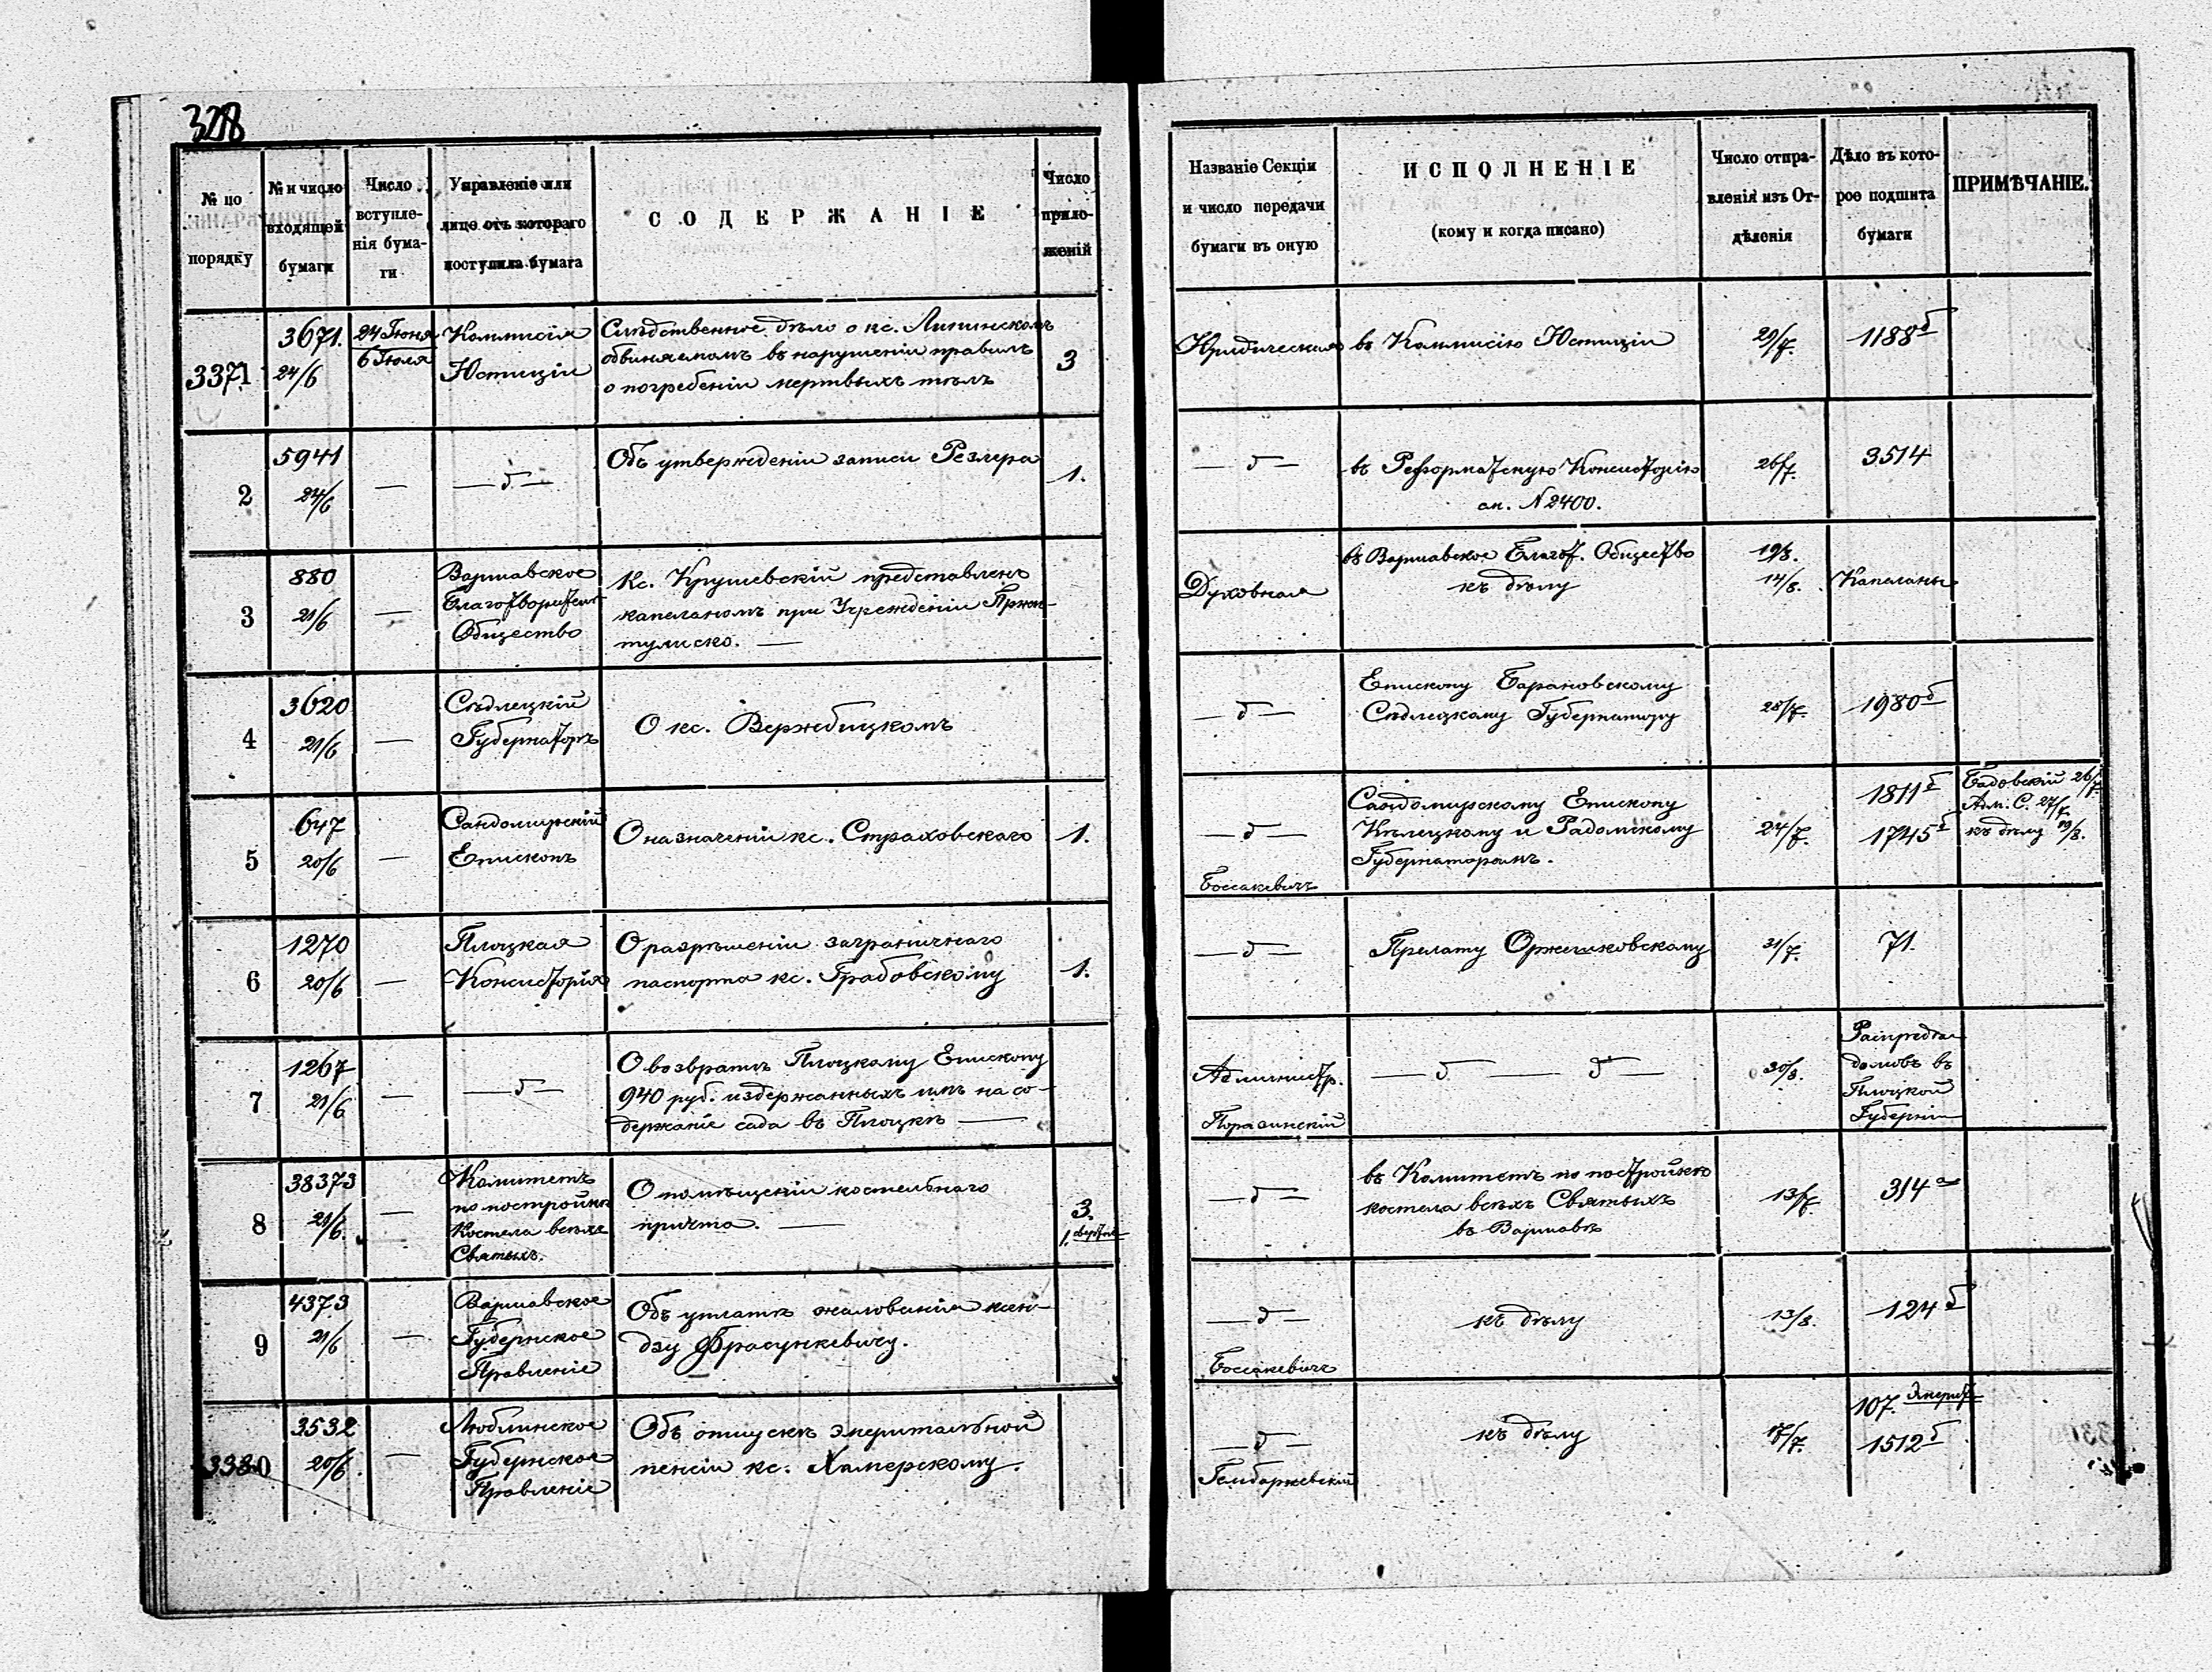 328
№ по порядку
№ и число входящей бумаги
Число вступле-нія бума-ги
Управленіе или лице отъ котораго поступила бумага
СОДЕРЖАНІЕ
Число прило-женій
Названіе Секціи и число передачи бумаги въ оную
ИСПОЛНЕНІЕ
(кому и когда писано)
Число отпра-вленія изъ От-дѣленія
Дѣло въ кото-рое подшита бумаги
ПРИМѢЧАНІЕ.
3371
3671.
24/6
24 Іюня
6 Іюля
Коммисія
Юстиціи
Слѣдственное дѣло о кс. Липинскомъ
обвиняемомъ въ нарушеніи правилъ
о погребеніи мертвыхъ тѣлъ
3
Юридическая
въ Коммисію Юстиціи
29/7.
1188б
2
5941
24/6
—
— д —
Объ утвержденіи записи Резлера
1.
— д —
въ Реформатскую Консисторію
сп. N 2400.
26/7.
3514
3
880
21/6
—
Варшавское
Благотворительн
Общество
Кс. Крушевскій представленъ
капеланомъ при Учрежденіи Пржи-
тулиско. —
Духовная
въ Варшавское Благот. Общество
къ дѣлу
19/8.
14/8.
Капеланы
4
3620
21/6
—
Сѣдлецкій
Губернаторъ
О кс. Вержбицкомъ
— д —
Епископу Барановскому
Сѣдлецкому Губернатору
28/7.
1980б
5
647
20/6
—
Сандомирскій
Епископъ
О назначеніи кс. Страховскаго
1.
— д —
Боссакевичъ
Сандомирскому Епископу
Кѣлецкому и Радомскому
Губернаторамъ.
24/7.
1811б
1745б
Бадовскій 26/7
Адм. С. 27/7
къ дѣлу 19/8.
6
1270
20/6
—
Плоцкая
Консисторія
О разрѣшеніи заграничнаго
паспорта кс. Грабовскому
1.
— д —
Прелату Оржешковскому
31/7.
71.
7
1267
21/6
—
— д —
О возвратѣ Плоцкому Епископу
940 руб. издержанныхъ имъ на со-
держаніе сада въ Плоцкѣ —
Администр.
Порасинскій
— д — д —
30/8.
домовъ въ
Плоцкой
Губерніи
8
38373
21/6.
—
Комитетъ
по постройкѣ
Костела всѣхъ
Святыхъ.
О помѣщеніи костельнаго
причта. —
3.
1.
— д —
въ Комитетъ по постройкѣ
костела всѣхъ Святыхъ
въ Варшавѣ
13/7.
314а
9
4373
21/6
—
Варшавское
Губернское
Правленіе
Объ уплатѣ жалованія ксен-
дзу Фрасункевичу.
— д —
Боссакевичъ
къ дѣлу
13/8.
124б
3380
3532
20/6.
—
Люблинское
Губернское
Правленіе
Объ отпускѣ эмеритальной
пенсіи кс. Хамерскому.
— д —
Гембаржевскій
къ дѣлу
17/7.
107. Эмерит.
1512б